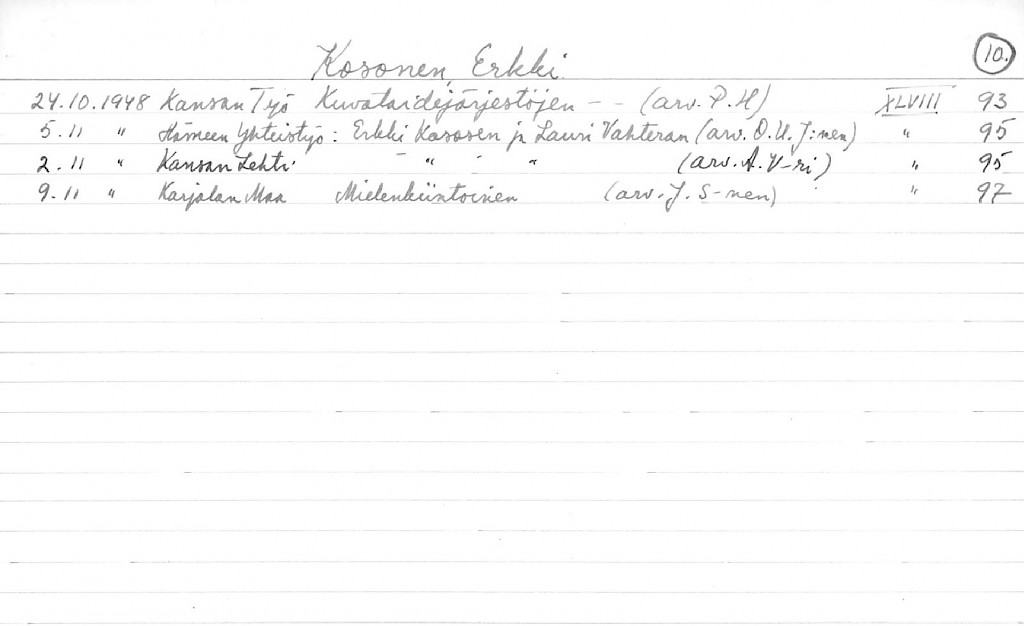 10.
Kosonen, Erkki
24.10.1948 Kansan Työ Kuvataidejärjestöjen - - (arv. P. H) XLVIII 93
5.11 " Hämeen Yhteistyö: Erkki Kososen ja Lauri Vahteran (arv. O. U. J:nen) " 95
2.11 " Kansan Lehti - " - " (arv. A. V-ri) " 95
9.11 " Karjalan Maa Mielenkiintoinen (arv. J. S-nen) " 97